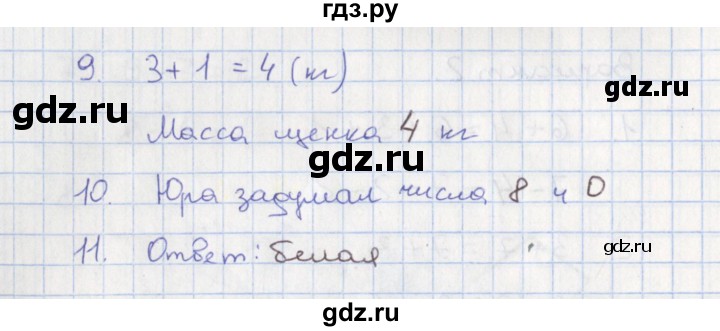 гдз.ру
9. 3+1=4 (кг)
gdz.ru gdz.ru
Масса щенка 4 кг
gdz.ru
10. Юра задумал числа 8 и 0
11. Ответ: белая
gdz.ru
gdz.ru
gdz.ru